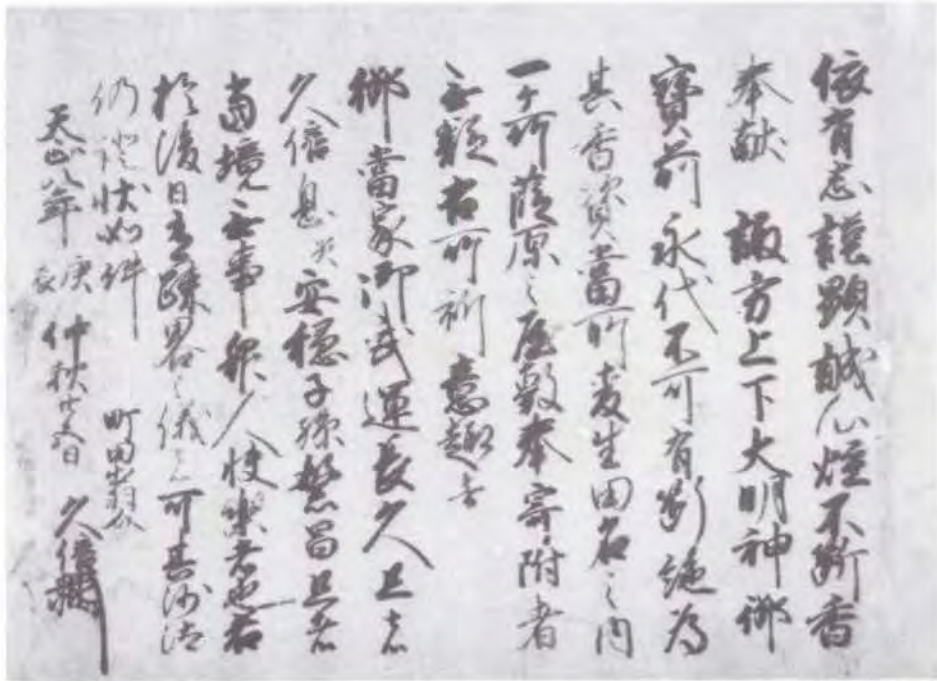 依有志謹顕誠心炷不断香
奉献 諏方上下大明神御
寶前永代不可有断絶為
其香資當所麦生田名之内
一ヶ所蔭原之屋敷奉寄附者
無疑右所祈意趣者
御當家御武運長久且者
久倍息災安穏子孫繁昌且者
當境無事衆人快楽者也若
於後日有疎畧之儀者可其沙汰
仍證状如件
天正八年庚辰 仲秋 日 久倍
町田出羽守